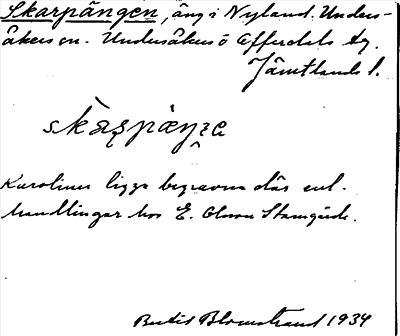 Skarpängen, äng i Nyland. Unders-
åkers sn. Undersåkers o Offerdals tg.
Jämtlands l.
skàṣpäŋːa
Karoliner ligga begravna där enl.
handlingar hos E. Olsson Stamgärde.
Bertil Blomstrand 1934